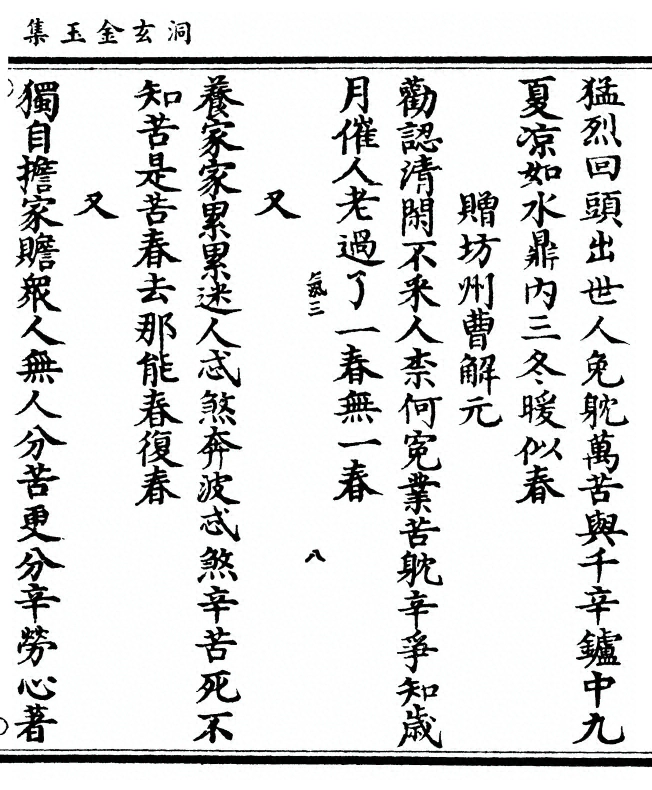 洞玄金玉集
猛烈回頭出世人免躭萬苦與千辛鑪中九
夏凉如水鼎內三冬暖似春
贈坊州曹解元
勸認清閑不采人柰何寃業苦躭辛爭知歲
月催人老過了一春無一春
氣三
八
又
養家家累累迷人忒煞奔波忒煞辛苦死不
知苦是苦春去那能春復春
又
獨自擔家贍衆人無人分苦更分辛勞心著